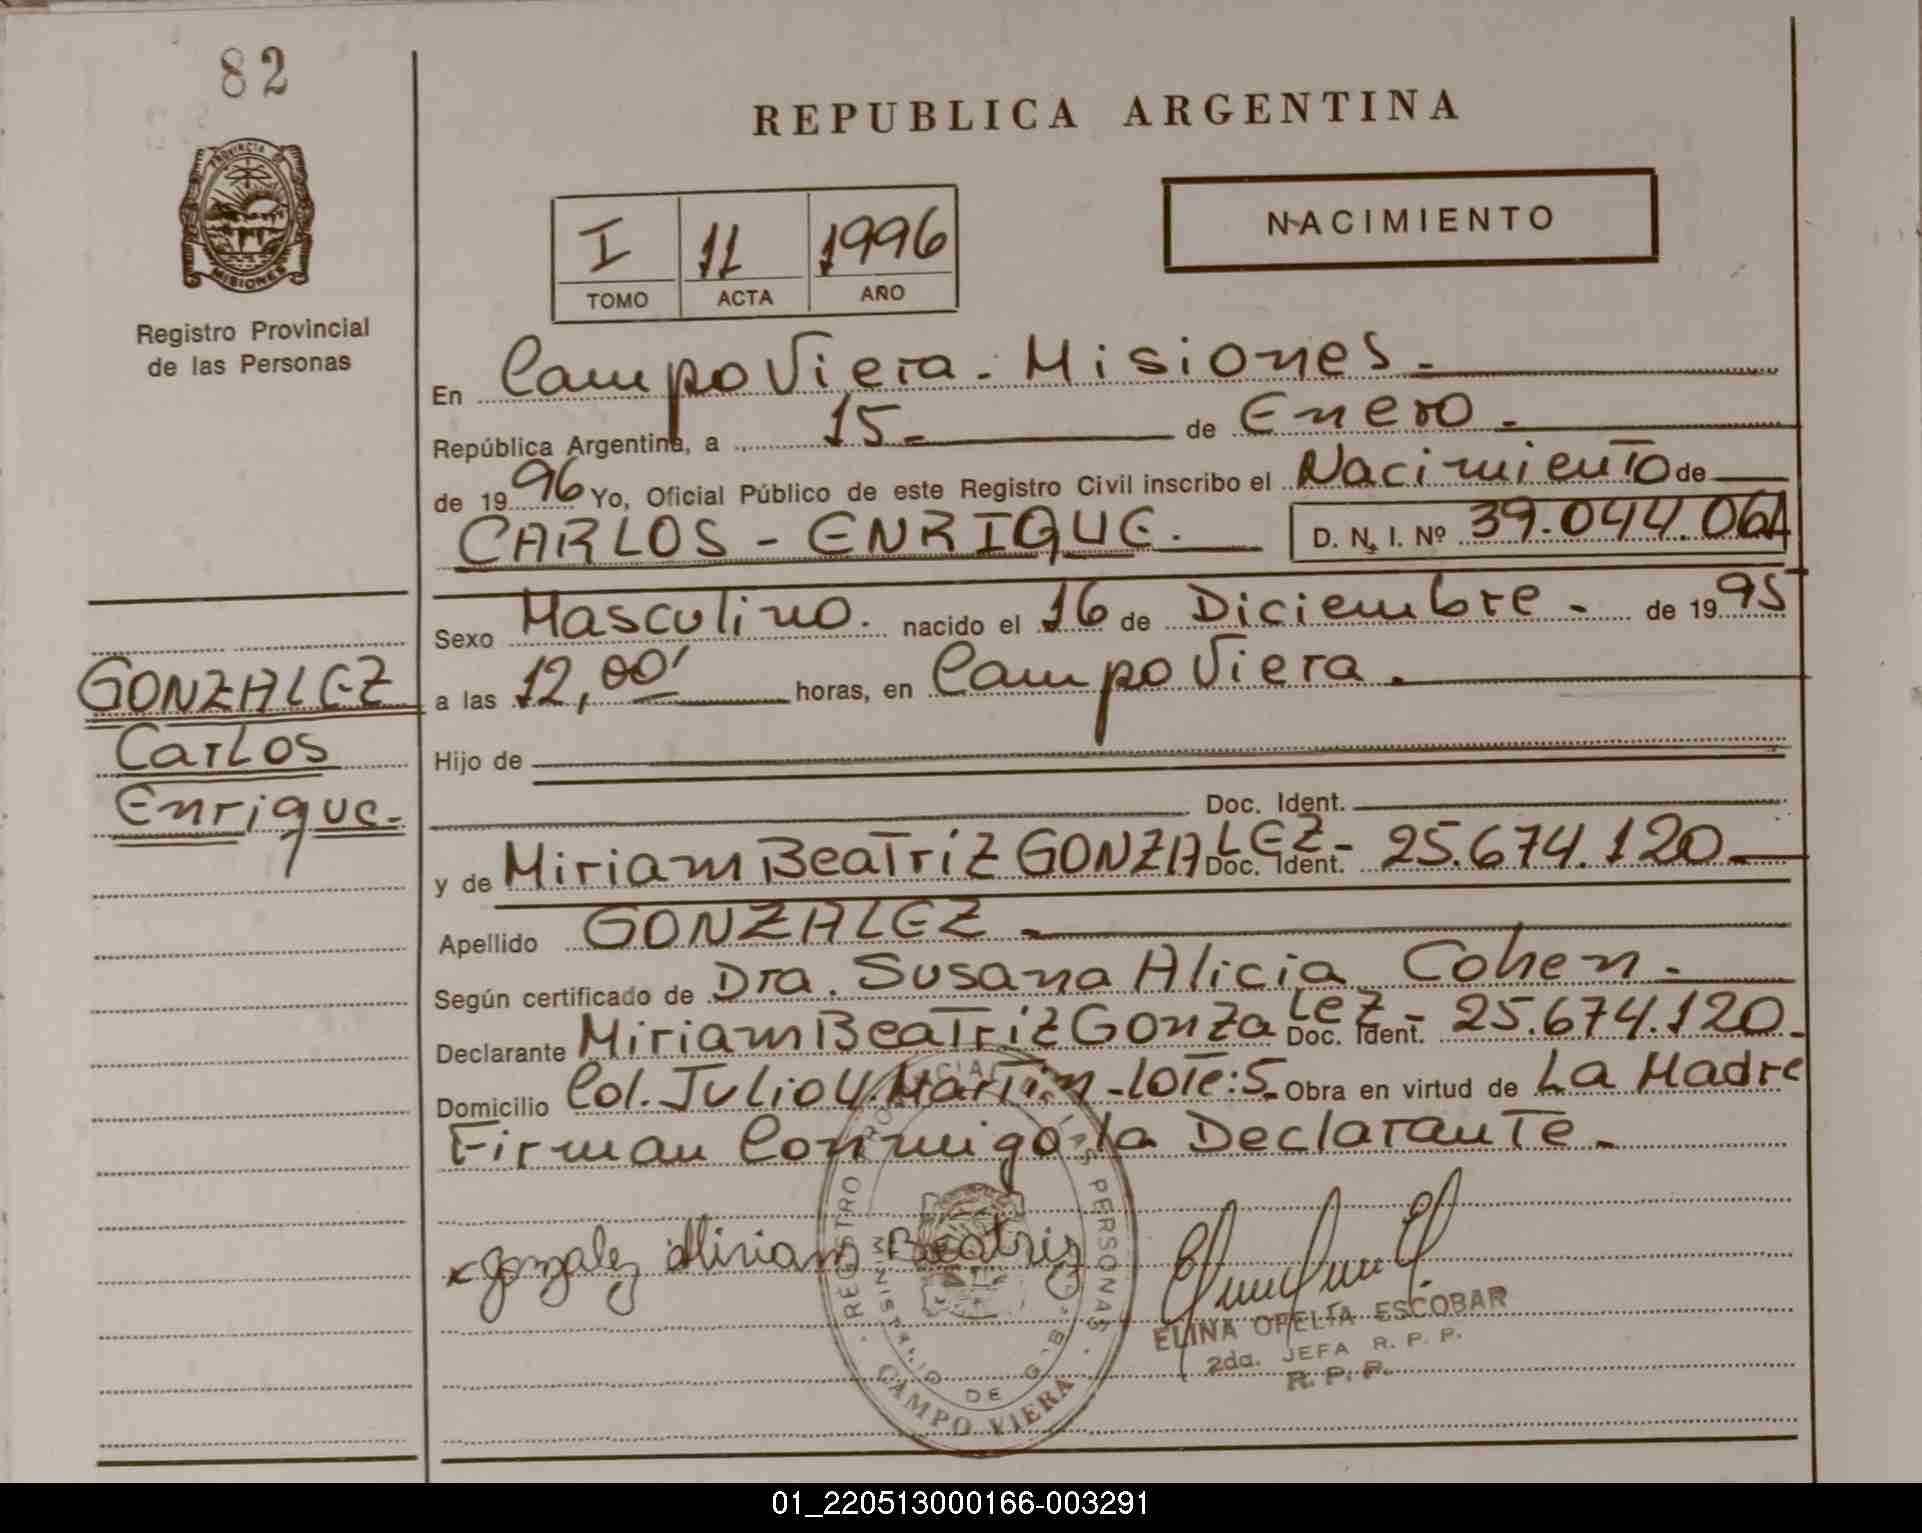 82
PROVINCIA DE
MISIONES
Registro Provincial
de las Personas
REPUBLICA ARGENTINA
NACIMIENTO
I 11 1996
TOMO ACTA AÑO
En Campo Viera - Misiones -
República Argentina, a 15 - de Enero -
de 1996 Yo, Oficial Público de este Registro Civil inscribo el Nacimiento de
CARLOS - ENRIQUE. D. N. I. Nº 39.044.061
Sexo Masculino. nacido el 16 de Diciembre - de 1995
a las 12,00' horas, en Campo Viera.
Hijo de
Doc. Ident.
y de Miriam Beatriz GONZALEZ - Doc. Ident. 25.674.120 -
Apellido GONZALEZ -
Según certificado de Dra. Susana Alicia Cohen -
Declarante Miriam Beatriz Gonzalez - Doc. Ident. 25.674.120 -
Domicilio Col. Julio U. Martin - Lote: 5 - Obra en virtud de La Madre
Firman Conmigo la Declarante -
x Gonzalez Miriam Beatriz
GONZALEZ
Carlos
Enrique -
REGISTRO PROVINCIAL DE LAS PERSONAS
MINISTERIO DE GOB.
CAMPO VIERA
ELINA OFELIA ESCOBAR
2da. JEFA R. P. P.
R. P. P.
01_220513000166-003291